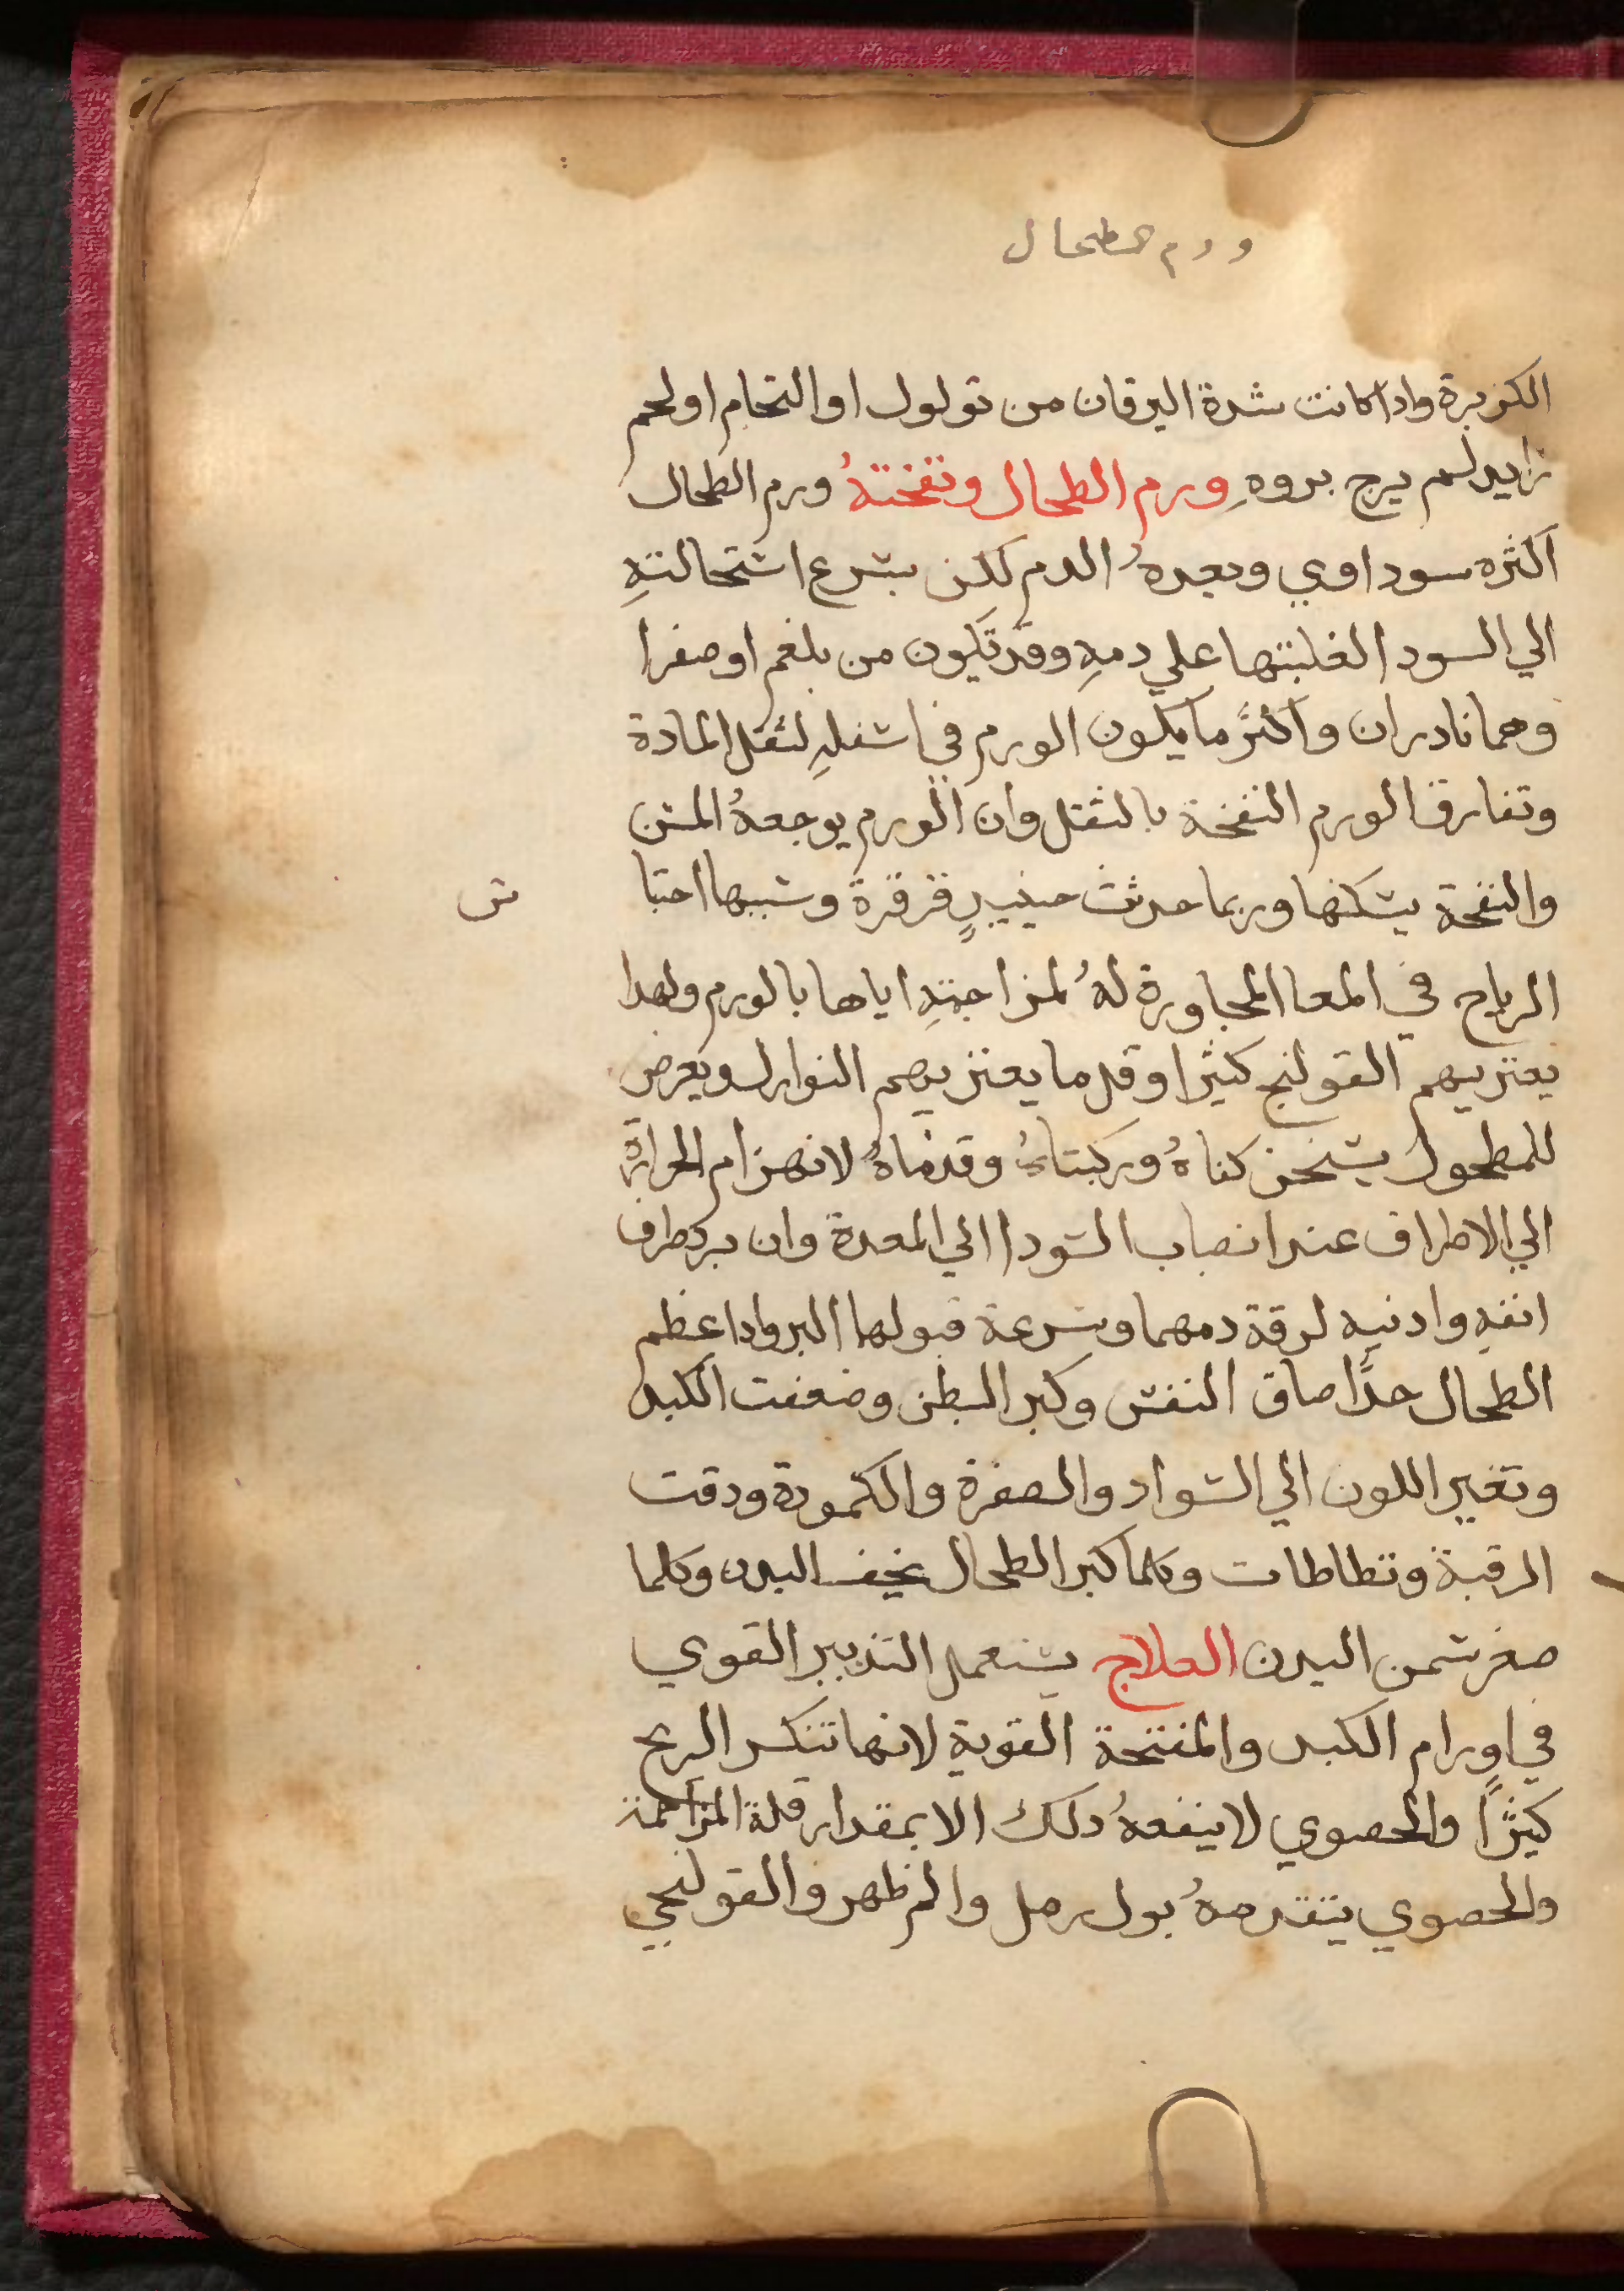 ورم طحال
الكزبرة واداكانت شدة اليرقان من تولول او التحام او لحم
زايد لم يرج بروهِ ورم الطحال ونفختهُ ورم الطحال
اكثره سوداوي وبعدهُ الدم لكن يشرع اشتحالتهِ
الي السودا لغلبتها علي دمهِ وقد تكون من بلغم او صفرا
وهما نادران واكثر ما يكون الورم في اشفلهِ لثقل المادة
وتفارق الورم النفخة بالثقل وان الورم يوجعهُ المش
والنفحة يشكنها وربما حدثت حينيدٍ قرقرة وشببها احتبا
ش
الرياح في المعا المجاورة لهُ لمزاجتهِ اياها بالورم ولهدا
يعتريهم القولنج كثيرا وقل ما يعتريهم النوازل ويعرض
للمطحول يشخن كفاهُ وركبتاهُ وقدماهُ لانهزام الحرارة
الي الاطراف عند انصباب الشودا الي المعدة وان برد طرف
انفهِ وادنيه لرقة دمهما وشرعة قبولها البرد وادا عظم
الطحال جدًا ضاق النفش وكبر البطن وضعفت الكبد
وتغير اللون الي الشواد والصفرة والكمودة ودقت
الرقبة وتطاطات وكلما كبر الطحال نحف البدن وكلما
صغر شمن البدن العلاج يشتعمل التدبير القوي
في اورام الكبد والمفتحة القوية لانها تنكسر الريح
كثيرًا والحصوي لا ينفعهُ دلك الا بمقدار قلة المزاحمة
والحصوي يتقدمهُ بول رمل والم ظهر والقولنجي